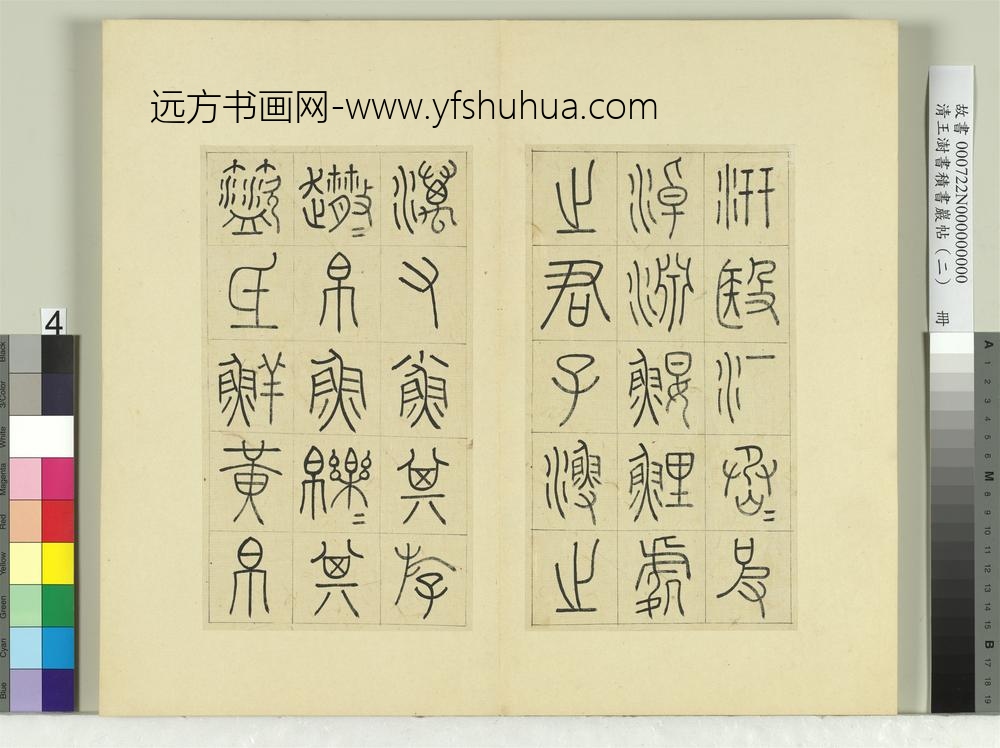 远方书画网-www.yfshuhua.com
汧殹沔烝皮
淖淵鰋鯉處
之君子漁之
澫又小魚其斿
帛魚其
氐鮮黃帛
故書 000722N000000000
清王澍書積書巖帖（二） 冊
4
Black
3/Color
White
Magenta
Red
Yellow
Green
Cyan
Blue
A 1 2 3 4 5 6 M 8 9 10 11 12 13 14 15 B 17 18 19